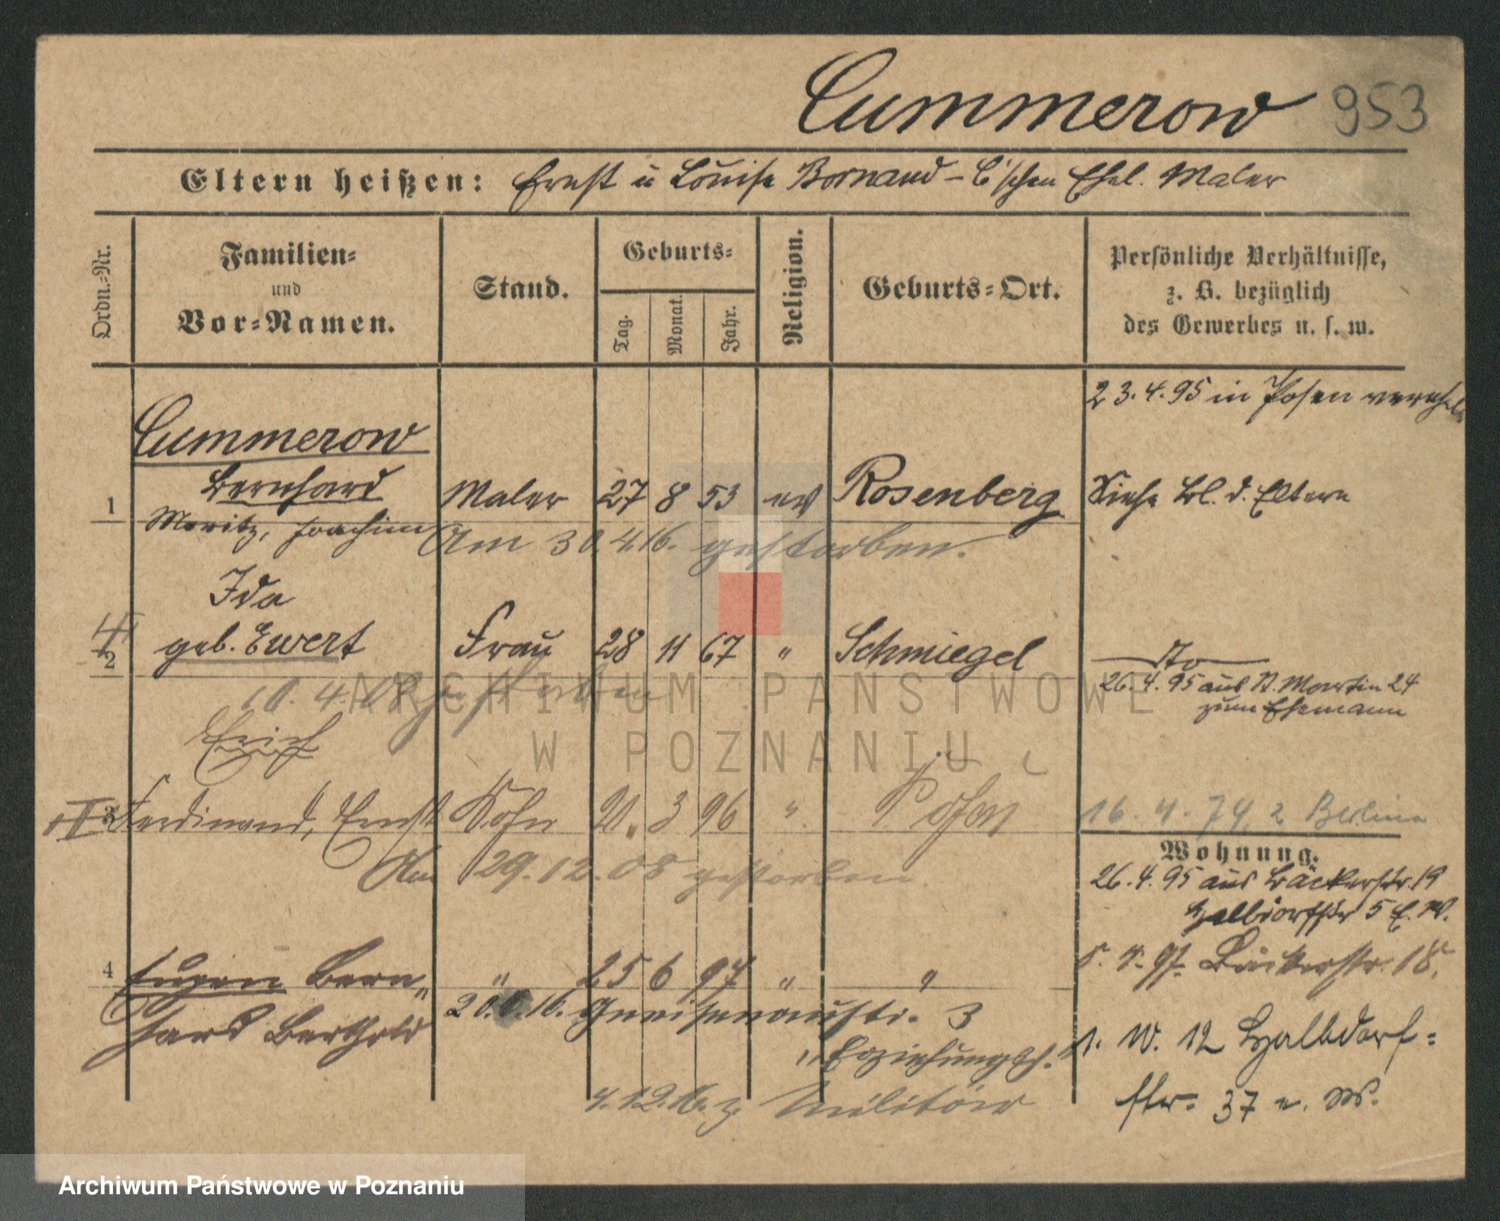 Cummerow 953
Eltern heißen: Ernst u Louise Bornand - C'schen Ehel. Maler
Ordn.-Nr.
Familien-
und
Vor-Namen.
Stand.
Geburts-
Tag.
Monat.
Jahr.
Religion.
Geburts-Ort.
Persönliche Verhältnisse,
z. B. bezüglich
des Gewerbes u. s. w.
23.4.95 in Posen verehel.
Cummerow
Bernhard
1 Maler 27 8 53 ev Rosenberg Siehe Bl. d. Eltern
Moritz, Joachim
Am 30.4.16. gestorben.
Ida
2 geb. Ewert Frau 28 11 67 " Schmiegel
10.4. gestorben
26.4.95 aus St. Martin 24
zum Ehemann
Erich
3 Ferdinand, Ernst Sohn 20. 3 96 " Posen
16.4.74 z Berlin
Am 29.12.08 gestorben
Wohnung.
26.4.95 aus Bäckerstr. 19
Halbdorfstr 5 E. W.
4 Eugen Bern- " 25 6 97 " "
Bäckerstr. 18.
hard Berthold
16. Gneisenaustr. 3
1. W. 12 Halbdorf-
str. 37 e. W.
4.12.16. z Militär
ARCHIWUM PAŃSTWOWE
W POZNANIU
Archiwum Państwowe w Poznaniu